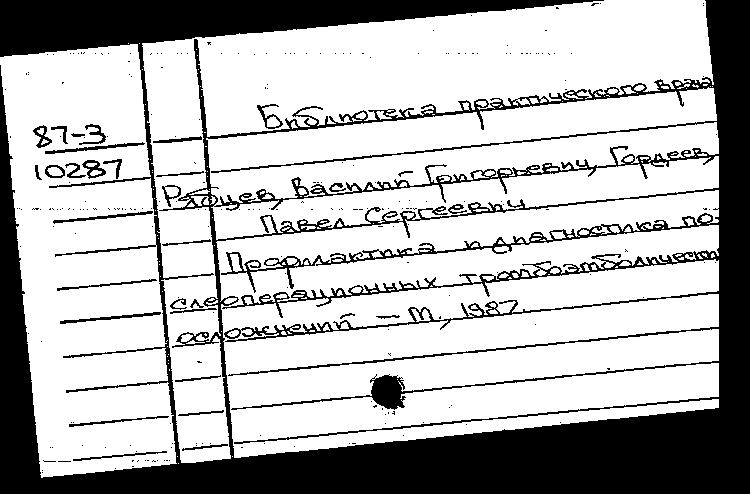 Библиотека практического врача
87-3
10287
Рябцев, Василий Григорьевич, Гордеев,
Павел Сергеевич
Профилактика и диагностика по-
слеоперационных тромбоэмболически
осложнений – М., 1987.